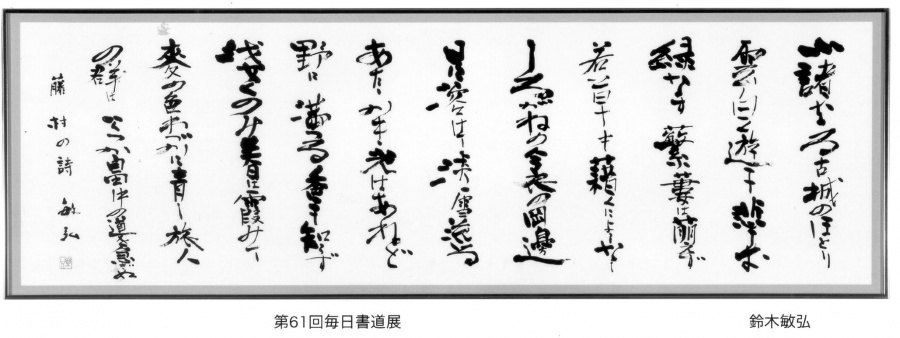 小諸なる古城のほとり
雲白く遊子悲しむ
緑なす繁蔞は萌えず
若草も藉くによしなし
しろがねの衾の岡邊
日に溶けて淡雪流る
あたゝかき光はあれど
野に満つる香も知らず
浅くのみ春は霞みて
麦の色わづかに青し旅人
の群はいくつか畠中の道を急ぎぬ
藤村の詩 敏弘
第61回毎日書道展
鈴木敏弘